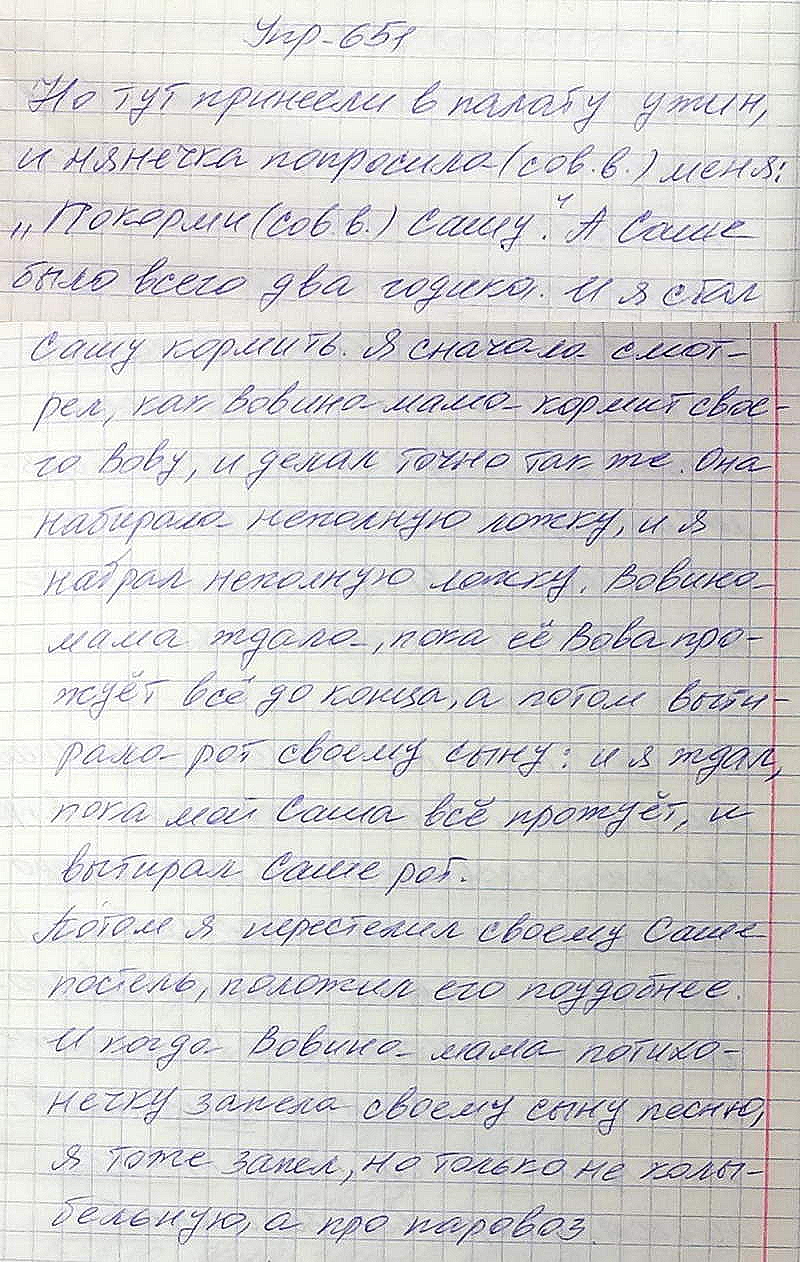 Упр-651
Но тут принесли в палату ужин,
и нянечка попросила (сов.в.) меня:
„Покорми (сов в.) Сашу." А Саше
было всего два годика. И я стал
Сашу кормить. Я сначала смот-
рел, как Вовина мама кормит свое-
го Вову, и делал точно так же. Она
набирала неполную ложку, и я
набрал неполную ложку. Вовина
мама ждала, пока её Вова про-
жуёт всё до конца, а потом выти-
рала рот своему сыну: и я ждал,
пока мой Саша всё прожуёт, и
вытирал Саше рот.
Потом я перестелил своему Саше
постель, положил его поудобнее.
И когда Вовина мама потихо-
нечку запела своему сыну песню,
я тоже запел, но только не колы-
бельную, а про паровоз.